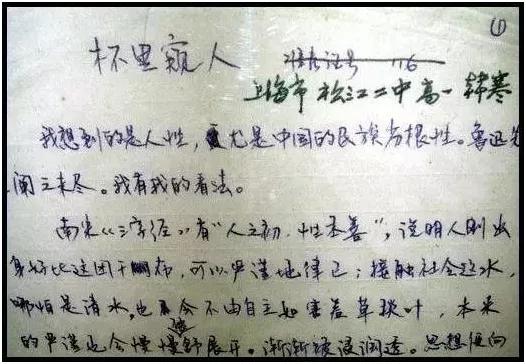 (1)
杯里窥人
证号
上海市松江二中高一 韩寒
我想到的是人性，尤是中国的民族劣根性。鲁迅先
阐之未尽。我有我的看法。
南宋《三字经》有“人之初，性本善”，说明人刚出
身好比这团干布，可以严谨地律己；接触社会这水，
哪怕是清水，也会不由自主如害羞草叶，本来
的严谨也会慢慢地舒展开，渐渐被浸润透。思想便向